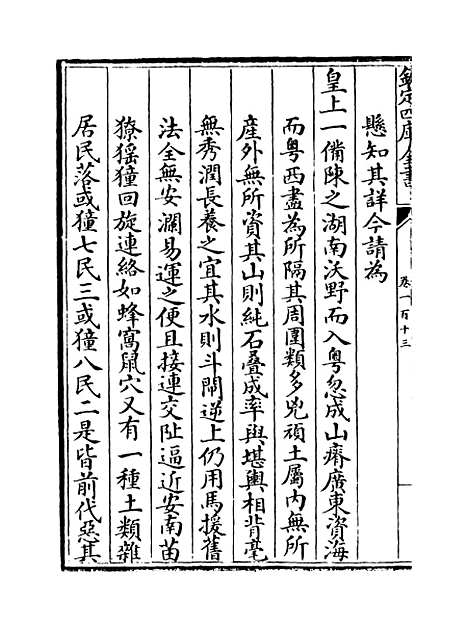 欽定四庫全書
卷一百十三
懸知其詳今請為
皇上一備陳之湖南沃野而入粤忽成山瘠廣東資海
而粤西盡為所隔其周圍類多兇頑土屬内無所
産外無所資其山則純石疊成率與堪輿相背毫
無秀潤長養之宜其水則斗閘逆上仍用馬援舊
法全無安瀾易運之便且接連交阯逼近安南苗
獠猺獞回旋連絡如蜂窩鼠穴又有一種土類雜
居民落或獞七民三或獞八民二是皆前代惡其